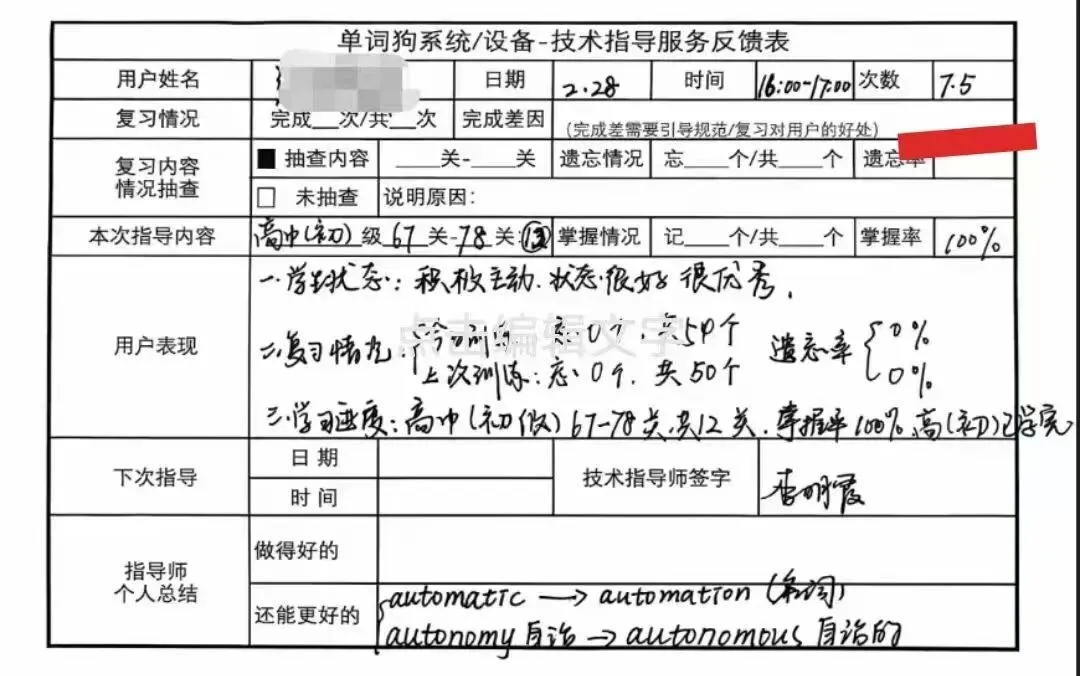 单词狗系统/设备-技术指导服务反馈表
用户姓名 日期 2.28 时间 16:00-17:00 次数 7.5
复习情况 完成__次/共__次 完成差因 (完成差需要引导规范/复习对用户的好处)
复习内容情况抽查 ■ 抽查内容 ____关-____关 遗忘情况 忘____个/共____个 遗忘率
□ 未抽查 说明原因:
本次指导内容 高中(初)级 67 关-78 关 掌握情况 记____个/共____个 掌握率 100%
用户表现
一.学生状态: 积极主动.状态很好 很优秀.
二.复习情况: 忘:0个. 共54个 遗忘率 0%
上次训练: 忘:0个. 共50个 0%
点击编辑文字
三.学习进度: 高中(初级) 67-78关.共12关. 掌握率100%.高(初)已学完
下次指导 日期
时间
技术指导师签字 李明霞
指导师个人总结 做得好的
还能更好的 automatic → automation (名词)
autonomy 自治 → autonomous 自治的